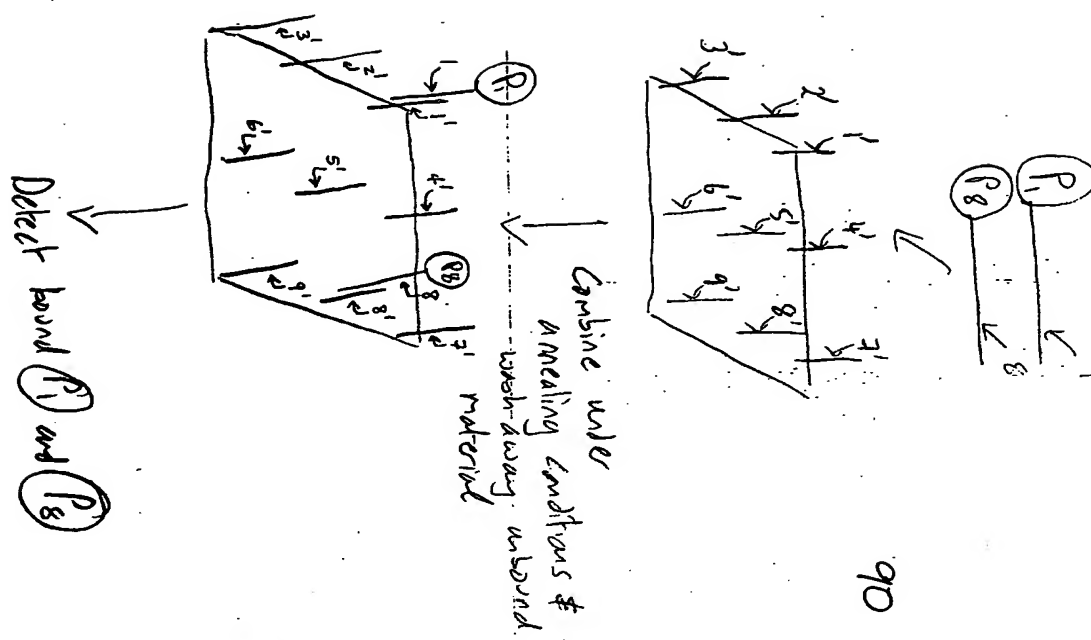 P1 1
P8 8
1' 4' 7'
2' 5' 8'
3' 6' 9'
Combine under
annealing conditions &
wash away unbound
material
P1
1
1' 4' P8 7'
8
2' 5' 8'
3' 6' 9'
Detect bound P1 and P8